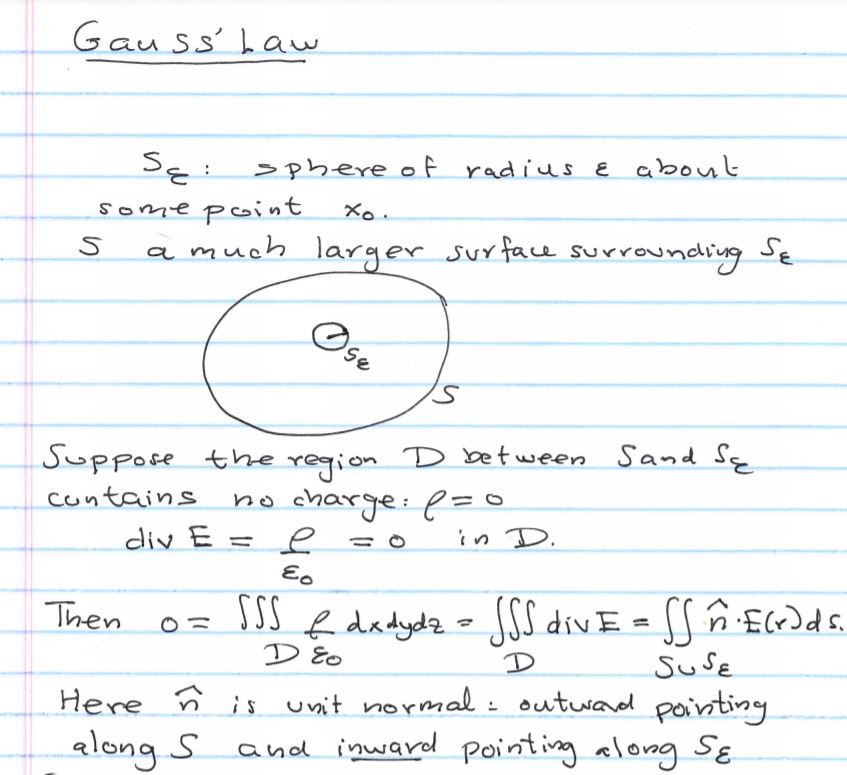 Gauss' Law
Sε : sphere of radius ε about
some point x₀.
S a much larger surface surrounding Sε
Sε
S
Suppose the region D between S and Sε
contains no charge: ρ = 0
div E = ρ/ε₀ = 0 in D.
Then 0 = ∭_D ρ/ε₀ dxdydz = ∭_D div E = ∬_{S∪Sε} n̂·E(r)ds.
Here n̂ is unit normal : outward pointing
along S and inward pointing along Sε